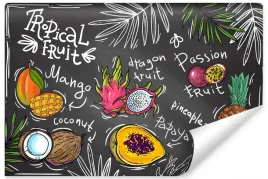 TROPICAL
FRUIT
Mango
dragon
fruit
Passion
FRUIT
pineapple
coconut
Papaya